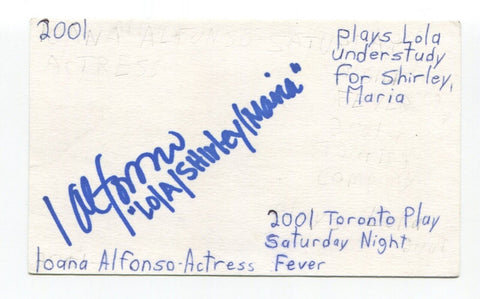 2001
plays Lola
understudy
for Shirley,
Maria
I Alfonso
"Lola/Shirley/Maria"
2001 Toronto Play
Saturday Night
Fever
Ioana Alfonso-Actress